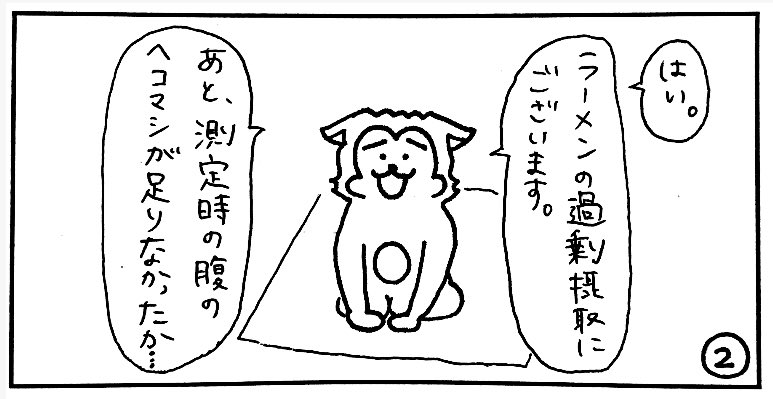 はい。
ラーメンの過剰摂取に
ございます。
あと、測定時の腹の
ヘコマシが足りなかったか…
2